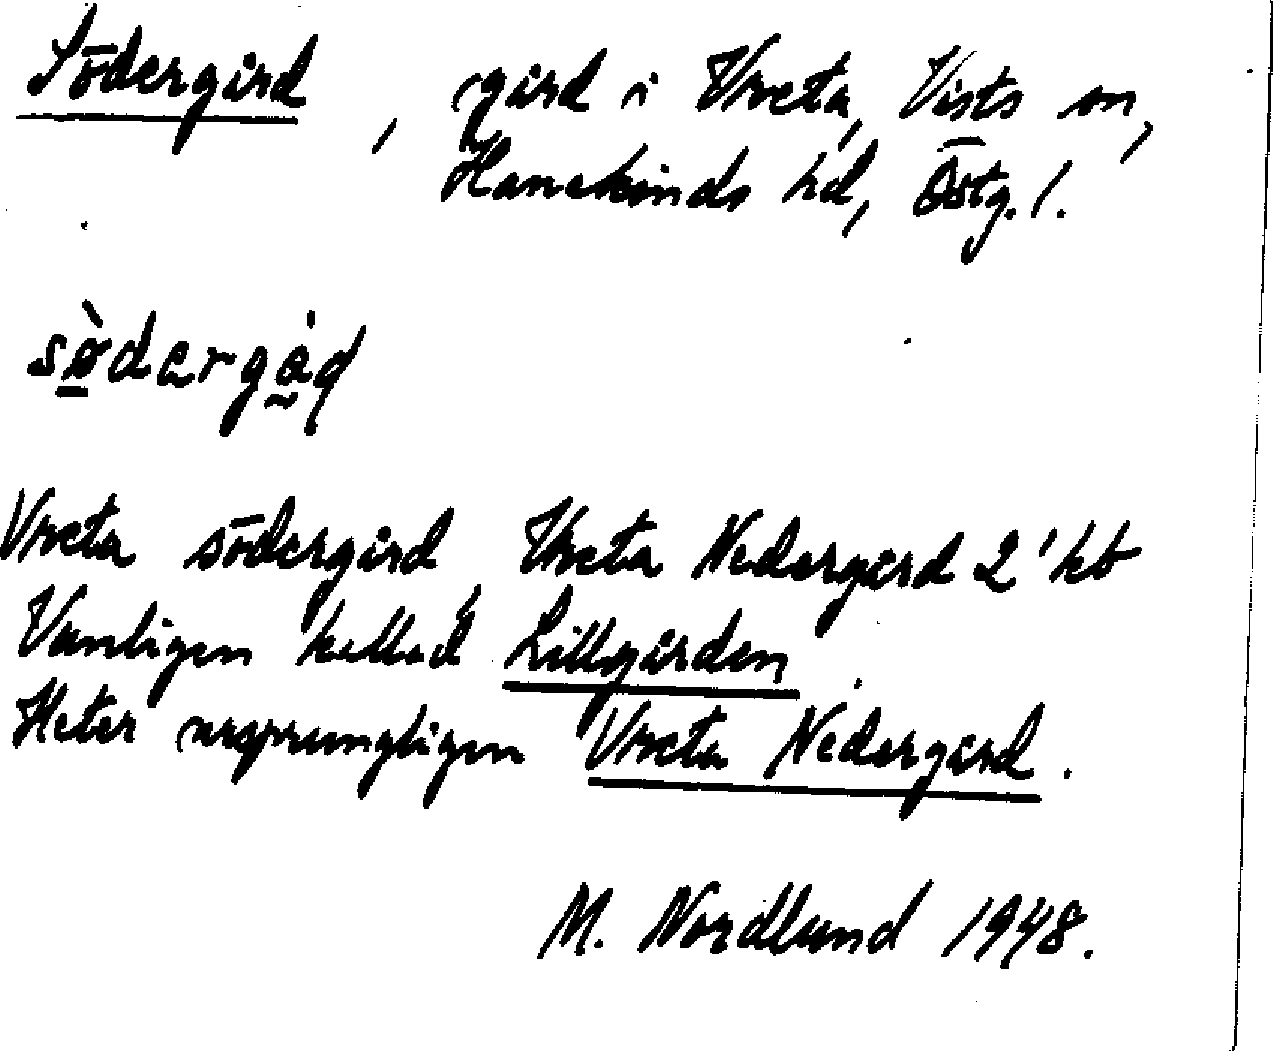 Södergård, gård i Vreta, Vists sn,
Hanekinds hd, Östg. l.
sö̀dərgåɖ
Vreta södergård, Vreta Nedergård 2 ' kb
Vanligen kallad Lillgården
Heter ursprungligen Vreta Nedergård.
M. Nordlund 1948.